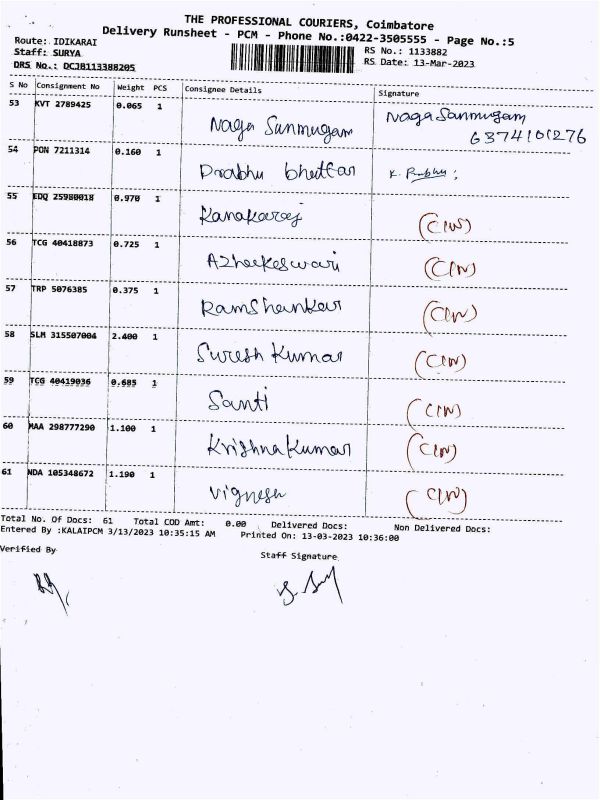 THE PROFESSIONAL COURIERS, Coimbatore
Delivery Runsheet - PCM - Phone No.:0422-3505555 - Page No.:5
Route: IDIKARAI
RS No.: 1133882
Staff: SURYA
RS Date: 13-Mar-2023
DRS No.: DCJB113388205
S No Consignment No Weight PCS Consignee Details Signature
53 KVT 2789425 0.065 1 Naga Sunmugam Naga Sanmugam
6374101276
54 PON 7211314 0.160 1 Prabhu bhuttar K. Prabhu
55 EDQ 25980018 0.970 1 Kanakaraj (CIW)
56 TCG 40418873 0.725 1 Azhaekeswari (CIW)
57 TRP 5076385 0.375 1 Ramshankar (CIW)
58 SLM 315507004 2.400 1 Suresh Kumar (CIW)
59 TCG 40419036 0.685 1 Santi (CIW)
60 MAA 298777290 1.100 1 Krishna Kumar (CIW)
61 NDA 105348672 1.190 1 Vignesh (CIW)
Total No. Of Docs: 61 Total COD Amt: 0.00 Delivered Docs: Non Delivered Docs:
Entered By :KALAIPCM 3/13/2023 10:35:15 AM Printed On: 13-03-2023 10:36:00
Verified By
Staff Signature